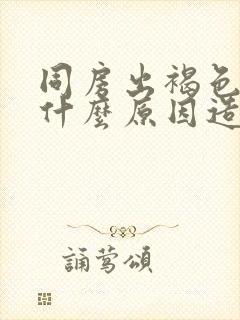 同房出褐色
什麼原因造
誦鶯頌